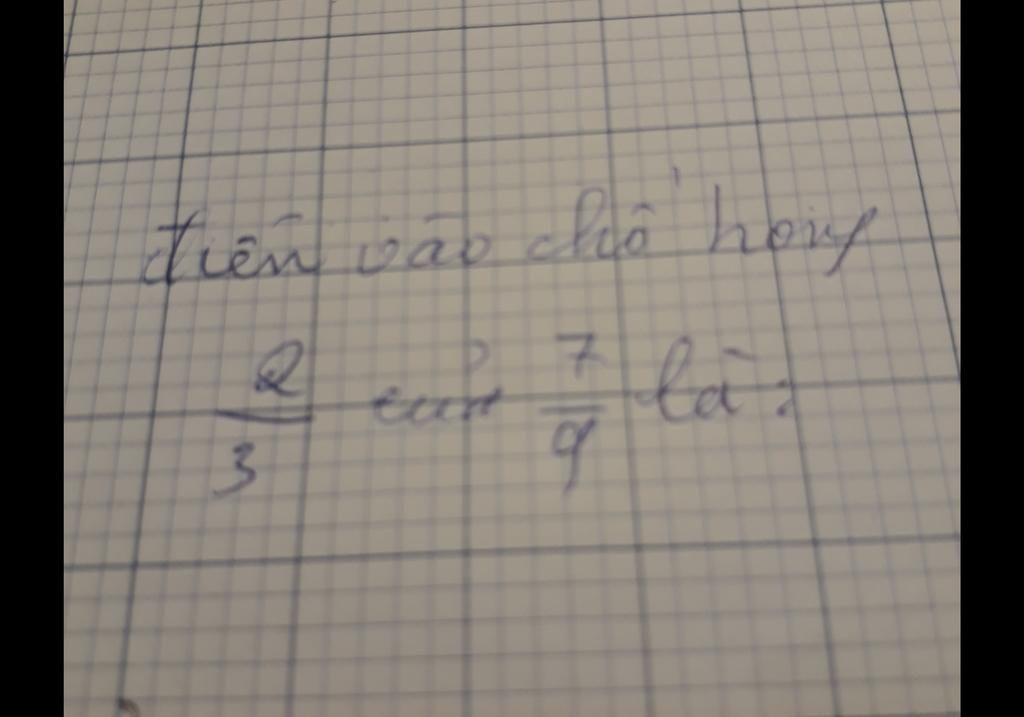 điền vào chỗ hỏng
2/3 của 7/9 là: